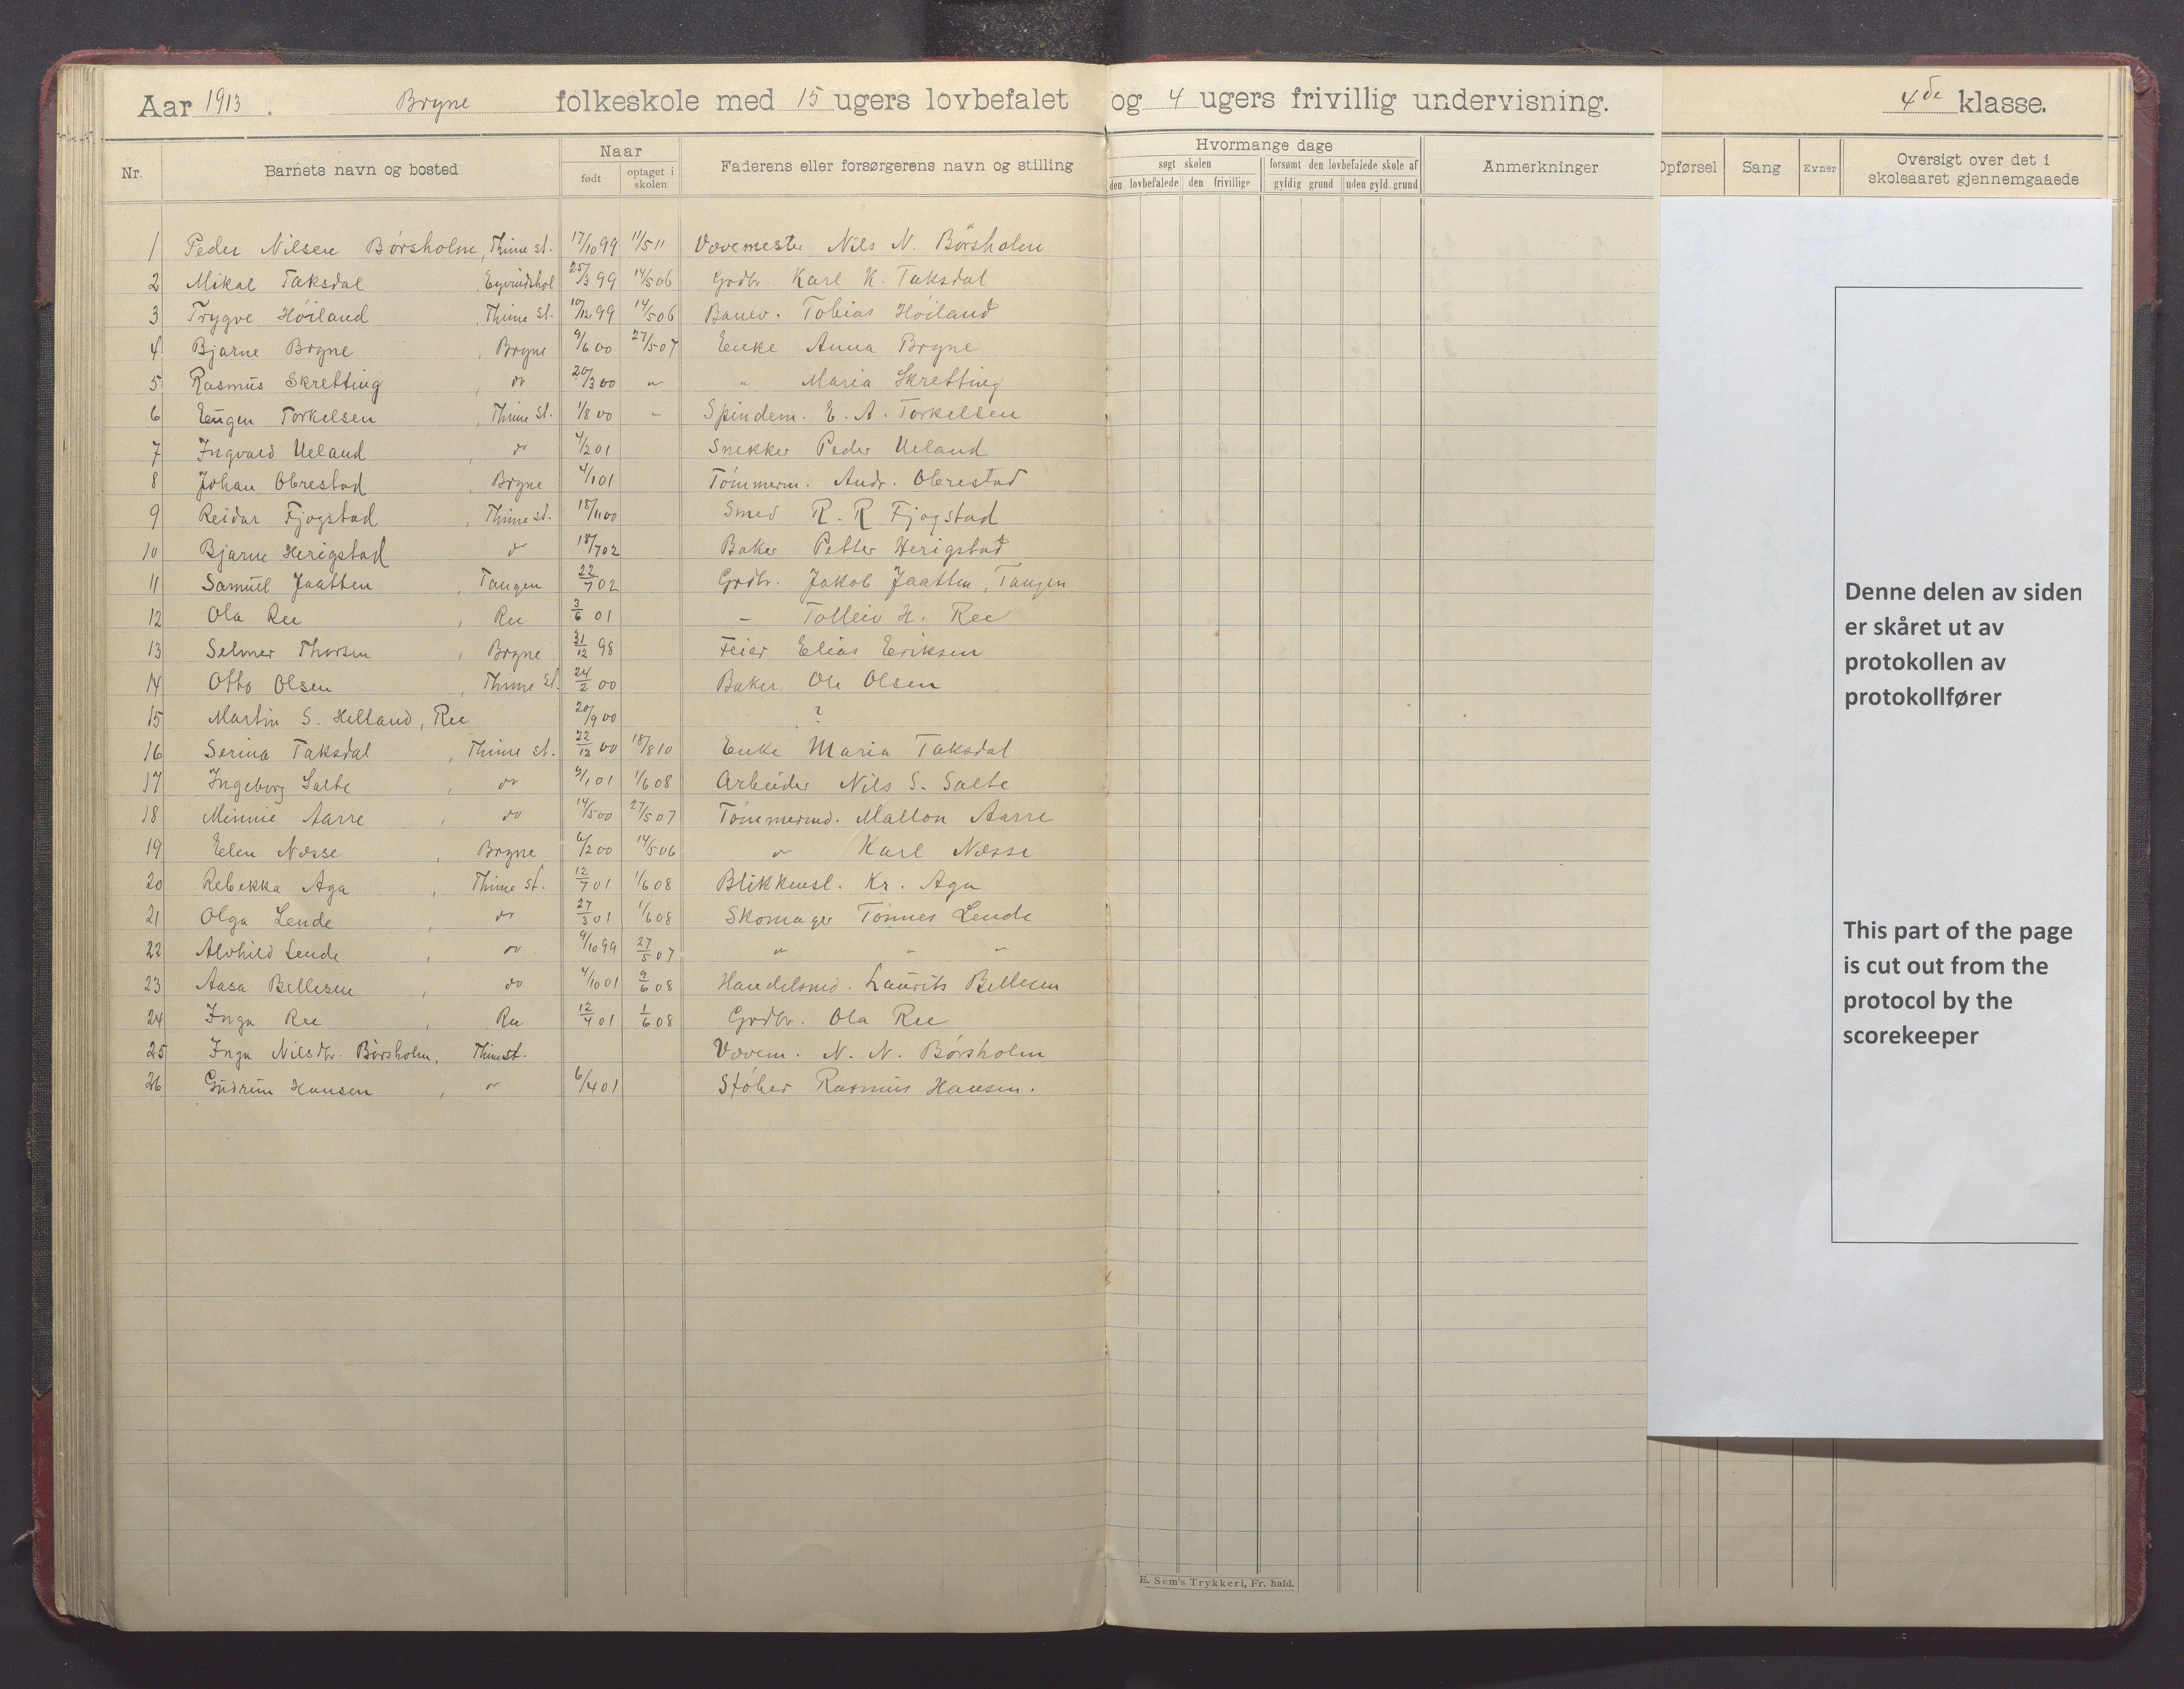 Aar 1913. Bryne folkeskole med 15 ugers lovbefalet og 4 ugers frivillig undervisning. 4de klasse.
Nr. Barnets navn og bosted Naar født optaget i skolen Faderens eller forsørgerens navn og stilling Hvormange dage søgt skolen den lovbefalede den frivillige forsømt den lovbefalede skole af gyldig grund uden gyld. grund Anmerkninger Opførsel Sang Evner Oversigt over det i skoleaaret gjennemgaaede
1 Peder Nilsen Börsholm, Thime st. 17/10 99 11/5 11 Vævemester Nils N. Börsholm
2 Mikal Taksdal, Eyvindshol 25/3 99 14/5 06 Grdbr. Karl K. Taksdal
3 Trygve Höiland, Thime st. 10/12 99 14/5 06 Banev. Tobias Höiland
4 Bjarne Bryne, Bryne 9/6 00 27/5 07 Enke Anna Bryne
5 Rasmus Skretting, do 20/3 00 " " Maria Skretting
6 Eugen Torkelsen, Thime st. 1/8 00 - Spindem. E. A. Torkelsen
7 Ingvald Ueland, do 4/2 01 Snekker Peder Ueland
8 Johan Obrestad, Bryne 4/1 01 Tömmerm. Andr. Obrestad
9 Reidar Fjogstad, Thime st. 18/11 00 Smed R. R Fjogstad
10 Bjarne Herigstad do 18/7 02 Baker Petter Herigstad
11 Samuel Jaatten, Tangen 22/7 02 Grdbr. Jakob Jaatten, Tangen
12 Ola Ree, Ree 3/6 01 - Tolleiv H. Ree
13 Selmer Thorsen, Bryne 31/12 98 Feier Elias Eriksen
14 Otto Olsen, Thime st. 24/2 00 Baker Ole Olsen
15 Martin S. Helland, Ree 20/9 00 ?
16 Serina Taksdal, Thime st. 22/12 00 18/8 10 Enke Maria Taksdal
17 Ingeborg Salte, do 9/1 01 1/6 08 Arbeider Nils S. Salte
18 Minnie Aarre, do 14/5 00 27/5 07 Tömmermd. Mallon Aarre
19 Elen Næsse, Bryne 6/2 00 14/5 06 " Karl Næsse
20 Rebekka Aga, Thime st. 12/7 01 1/6 08 Blikkensl. Kr. Aga
21 Olga Lende, do 27/3 01 1/6 08 Skomager Tönnes Lende
22 Alvhild Lende, do 9/10 99 27/5 07 " " "
23 Aasa Bellesen, do 4/10 01 9/6 08 Handelsmd. Laurits Bellesen
24 Inga Ree, Ree 12/4 01 1/6 08 Grdbr. Ola Ree
25 Inga Nilsdtr. Börsholm, Thime st. Vævem. N. N. Börsholm
26 Gudrun Hansen, " 6/4 01 Støber Rasmus Hansen.
Denne delen av siden
er skåret ut av
protokollen av
protokollfører
This part of the page
is cut out from the
protocol by the
scorekeeper
E. Sem's Trykkeri, Fr. hald.